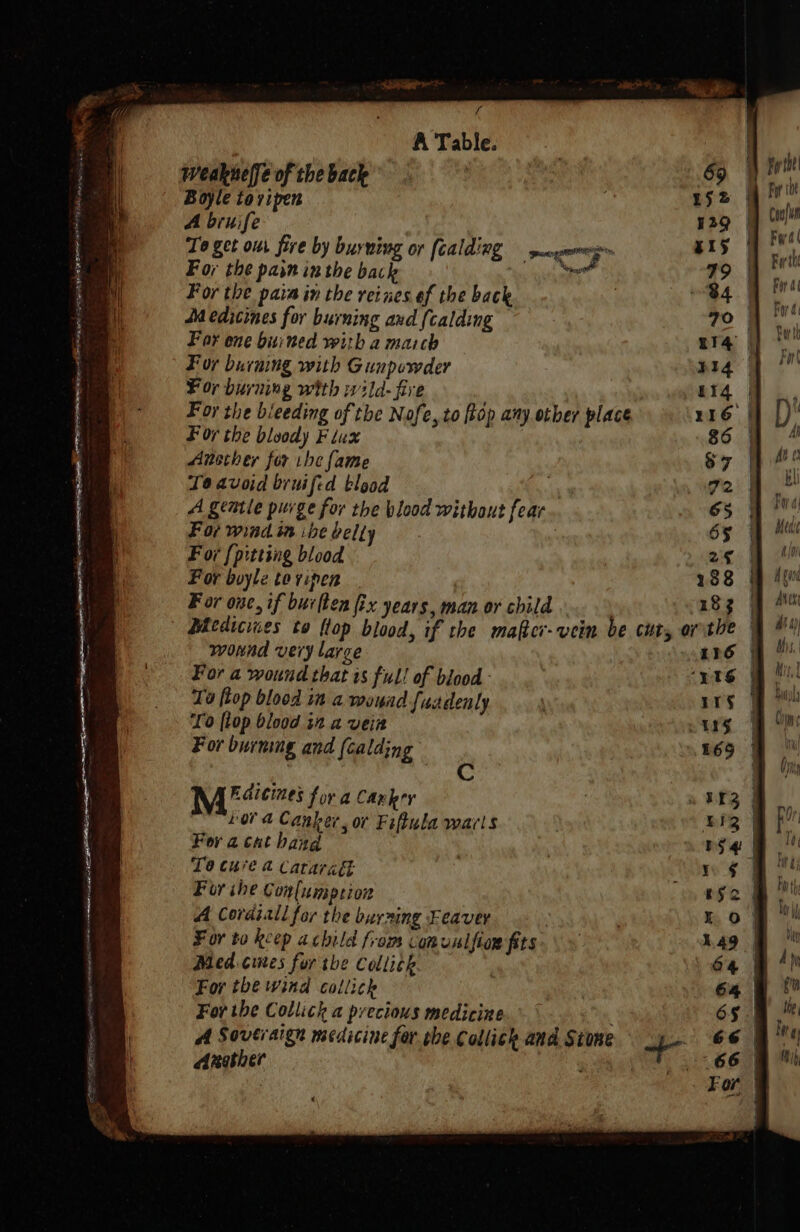 A Table.
Weakneſſe of the back 69
Boyle to ripen 152
A bruiſe 129
To get out fire by burning or ſcalding 115
For the pain in the back 79
For the pain in the reines of the back 84
Medicines for burning and ſcalding 70
For one burned with a match 114
For burning with Gunpowder 114
For burning with wild-fire 114
For the bleeding of the Noſe, to ſtop any other place 116
For the bloody Flux 86
Another for the ſame 87
To avoid bruiſed blood 72
A gentle purge for the blood without fear 65
For wind in the belly 65
For ſpitting blood 25
For boyle to ripen 188
For one, if burſten ſix years, man or child 183
Medicines to ſtop blood, if the maſter-vein be cut, or the
wound very large 116
For a wound that is full of blood 116
To ſtop blood in a wound ſuddenly 115
To ſtop blood in a vein 115
For burning and ſcalding 169
C
MEdicines for a Canker 113
For a Canker, or Fiſtula warts 113
For a cut hand 154
To cure a Cataract
For the Conſumption 152
A Cordiall for the burning Feaver
For to keep a child from convulſion fits 149
Medicines for the Collick 64
For the wind collick 64
For the Collick a precious medicine 65
A Soveraign medicine for the Collick and Stone 66
Another 66
For